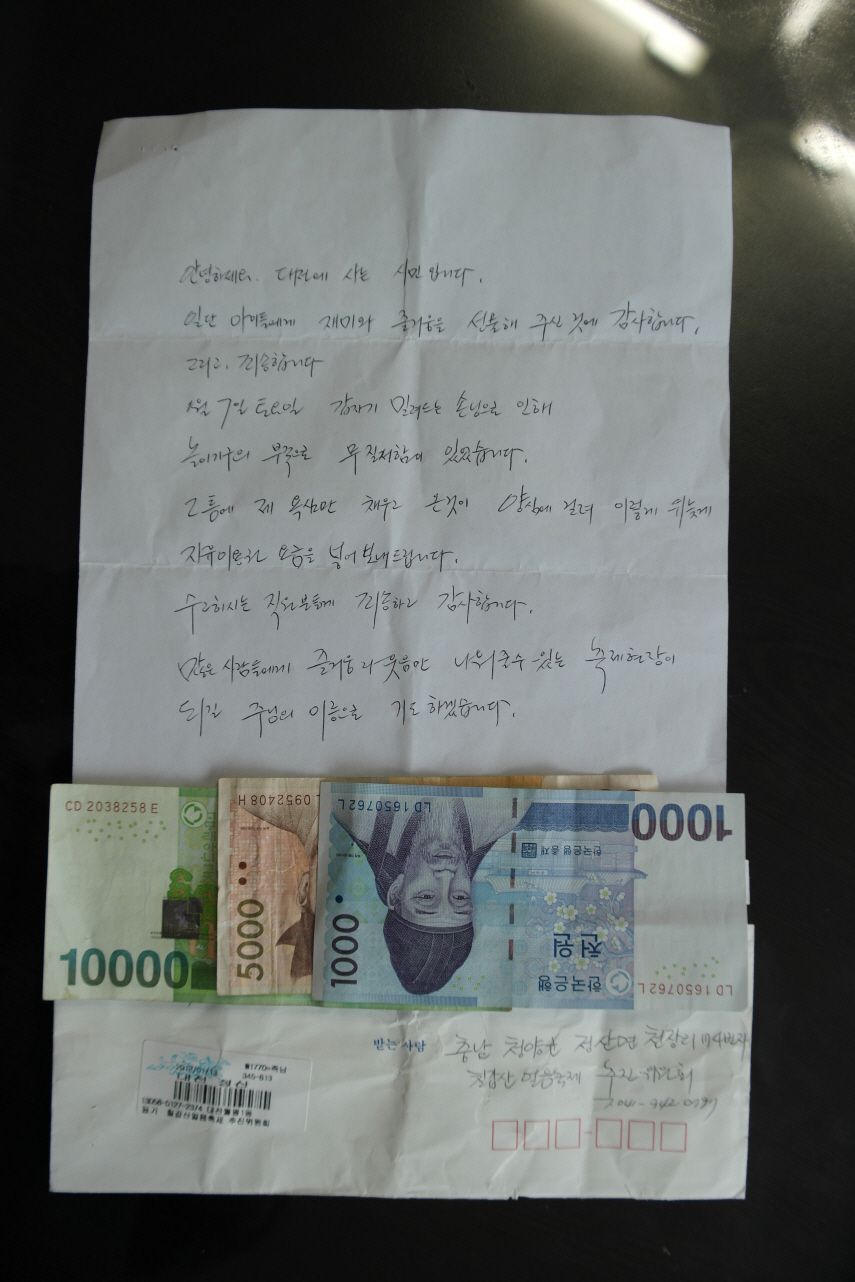 안녕하세요. 대전에 사는 시민 입니다.
일단 아이들에게 재미와 즐거움을 선물해 주신 것에 감사합니다.
그리고, 죄송합니다
1월 7일 토요일 갑자기 밀려드는 손님으로 인해
놀이기구의 부족으로 무질서함이 있었습니다.
그틈에 제 욕심만 채우고 온것이 양심에 걸려 이렇게 뒤늦게
자유이용권 요금을 넣어보내드립니다.
수고하시는 직원분들께 죄송하고 감사합니다.
많은 사람들에게 즐거움과 웃음만 나눠줄수 있는 축제현장이
되길 주님의 이름으로 기도 하겠습니다.
CD 2038258 E
10000
0952408 H
5000
LD 1650762 L
1000
한국은행 총재
1000
천원
한국은행
LD 1650762 L
받는 사람
충남 청양군 정산면 천장리
칠갑산 얼음축제 추진위원회
2012/01/13
345-813
대전월평1동
등기 칠갑산얼음축제 추진위원회